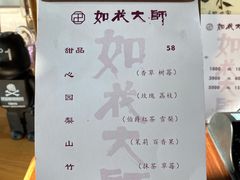 如我大師
甜品 58
心 (香草 树莓)
园 (玫瑰 荔枝)
梨 (伯爵红茶 雪梨)
山 (茉莉 百香果)
竹 (抹茶 草莓)
如我大師